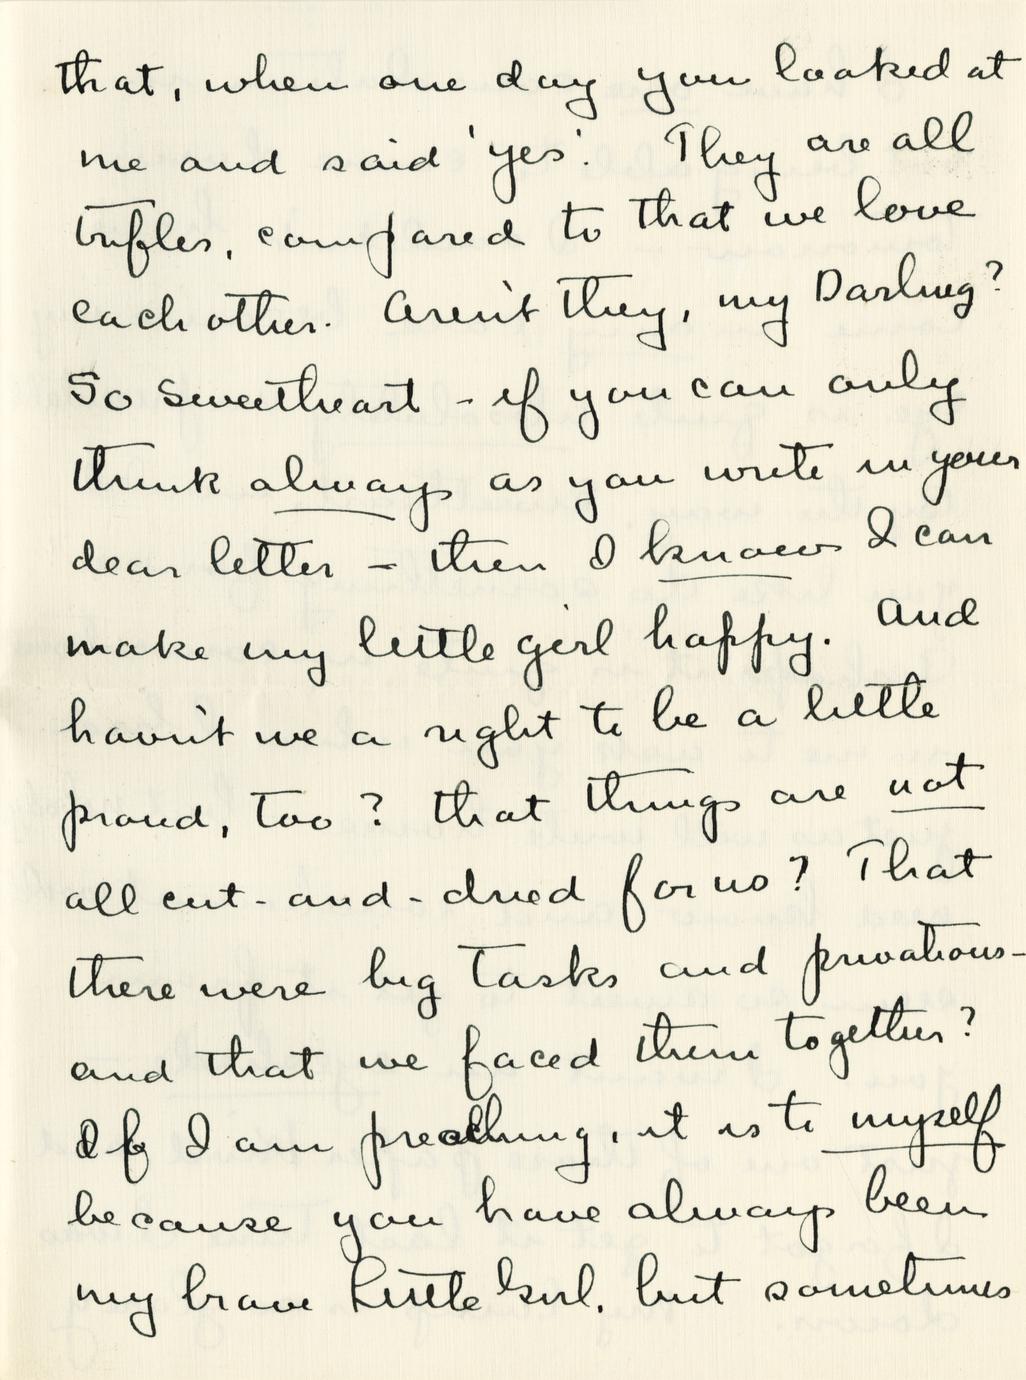 that, when one day you looked at
me and said 'yes'. They are all
trifles, compared to that we love
each other. Aren't they, my Darling?
So Sweetheart - if you can only
think always as you write in your
dear letter - then I know I can
make my little girl happy. And
havn't we a right to be a little
proud, too? that things are not
all cut-and-dried for us? That
there were big tasks and privations-
and that we faced them together?
If I am preaching, it is to myself
because you have always been
my brave Little Girl, but sometimes